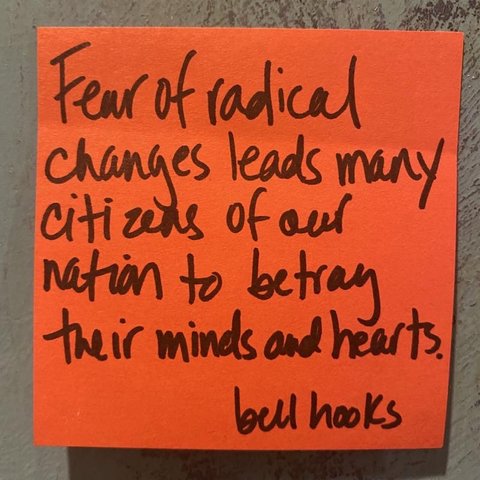 Fear of radical
changes leads many
citizens of our
nation to betray
their minds and hearts.
bell hooks